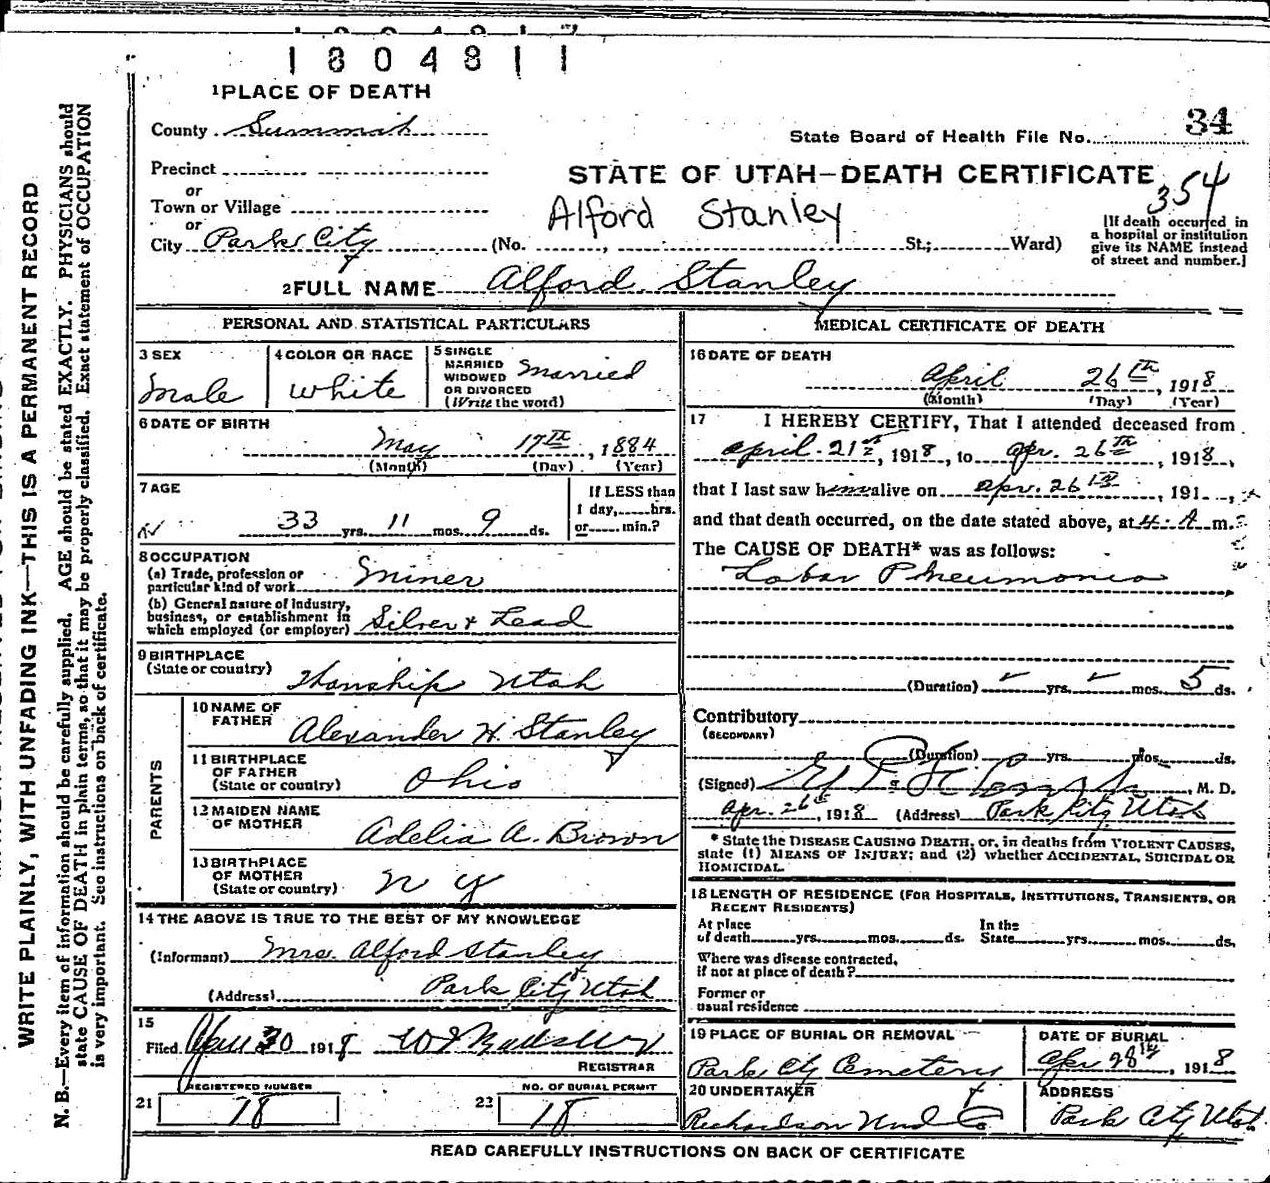 1804811
1 PLACE OF DEATH
County Summit
State Board of Health File No. 34
Precinct
STATE OF UTAH—DEATH CERTIFICATE
354
or
Town or Village
Alford Stanley
or
City Park City (No. , St.; Ward)
[If death occurred in
a hospital or institution
give its NAME instead
of street and number.]
2 FULL NAME Alford Stanley
PERSONAL AND STATISTICAL PARTICULARS
3 SEX
Male
4 COLOR OR RACE
White
5 SINGLE
MARRIED
WIDOWED
OR DIVORCED
(Write the word)
Married
6 DATE OF BIRTH
May 17th, 1884
(Month) (Day) (Year)
7 AGE
33 yrs. 11 mos. 9 ds.
If LESS than
1 day, hrs.
or min.?
8 OCCUPATION
(a) Trade, profession or
particular kind of work Miner
(b) General nature of industry,
business, or establishment in
which employed (or employer) Silver & Lead
9 BIRTHPLACE
(State or country)
Wanship Utah
PARENTS
10 NAME OF
FATHER
Alexander H. Stanley
11 BIRTHPLACE
OF FATHER
(State or country)
Ohio
12 MAIDEN NAME
OF MOTHER
Adelia A. Brown
13 BIRTHPLACE
OF MOTHER
(State or country)
N Y
14 THE ABOVE IS TRUE TO THE BEST OF MY KNOWLEDGE
(Informant) Mrs. Alford Stanley
(Address) Park City Utah
15
Filed 30 1918
REGISTRAR
REGISTERED NUMBER
21 18
NO. OF BURIAL PERMIT
22 18
MEDICAL CERTIFICATE OF DEATH
16 DATE OF DEATH
April 26th, 1918
(Month) (Day) (Year)
17 I HEREBY CERTIFY, That I attended deceased from
April. 21st, 1918, to Apr. 26th, 1918,
that I last saw h alive on Apr. 26th, 191 ,
and that death occurred, on the date stated above, at 4. A m.
The CAUSE OF DEATH* was as follows:
Lobar Pneumonia
(Duration) yrs. mos. 5 ds.
Contributory
(SECONDARY)
(Duration) yrs. mos. ds.
(Signed) , M. D.
Apr. 26th, 1918 (Address) Park City Utah
* State the DISEASE CAUSING DEATH, or, in deaths from VIOLENT CAUSES,
state (1) MEANS OF INJURY; and (2) whether ACCIDENTAL, SUICIDAL OR
HOMICIDAL.
18 LENGTH OF RESIDENCE (FOR HOSPITALS, INSTITUTIONS, TRANSIENTS, OR
RECENT RESIDENTS)
At place
of death yrs. mos. ds.
In the
State yrs. mos. ds.
Where was disease contracted,
if not at place of death?
Former or
usual residence
19 PLACE OF BURIAL OR REMOVAL
Park City Cemetery
DATE OF BURIAL
Apr 28th, 1918
20 UNDERTAKER
Richardson Und Co
ADDRESS
Park City Utah
READ CAREFULLY INSTRUCTIONS ON BACK OF CERTIFICATE
WRITE PLAINLY, WITH UNFADING INK—THIS IS A PERMANENT RECORD
N. B.—Every item of information should be carefully supplied. AGE should be stated EXACTLY. PHYSICIANS should
state CAUSE OF DEATH in plain terms, so that it may be properly classified. Exact statement of OCCUPATION
is very important. See instructions on back of certificate.